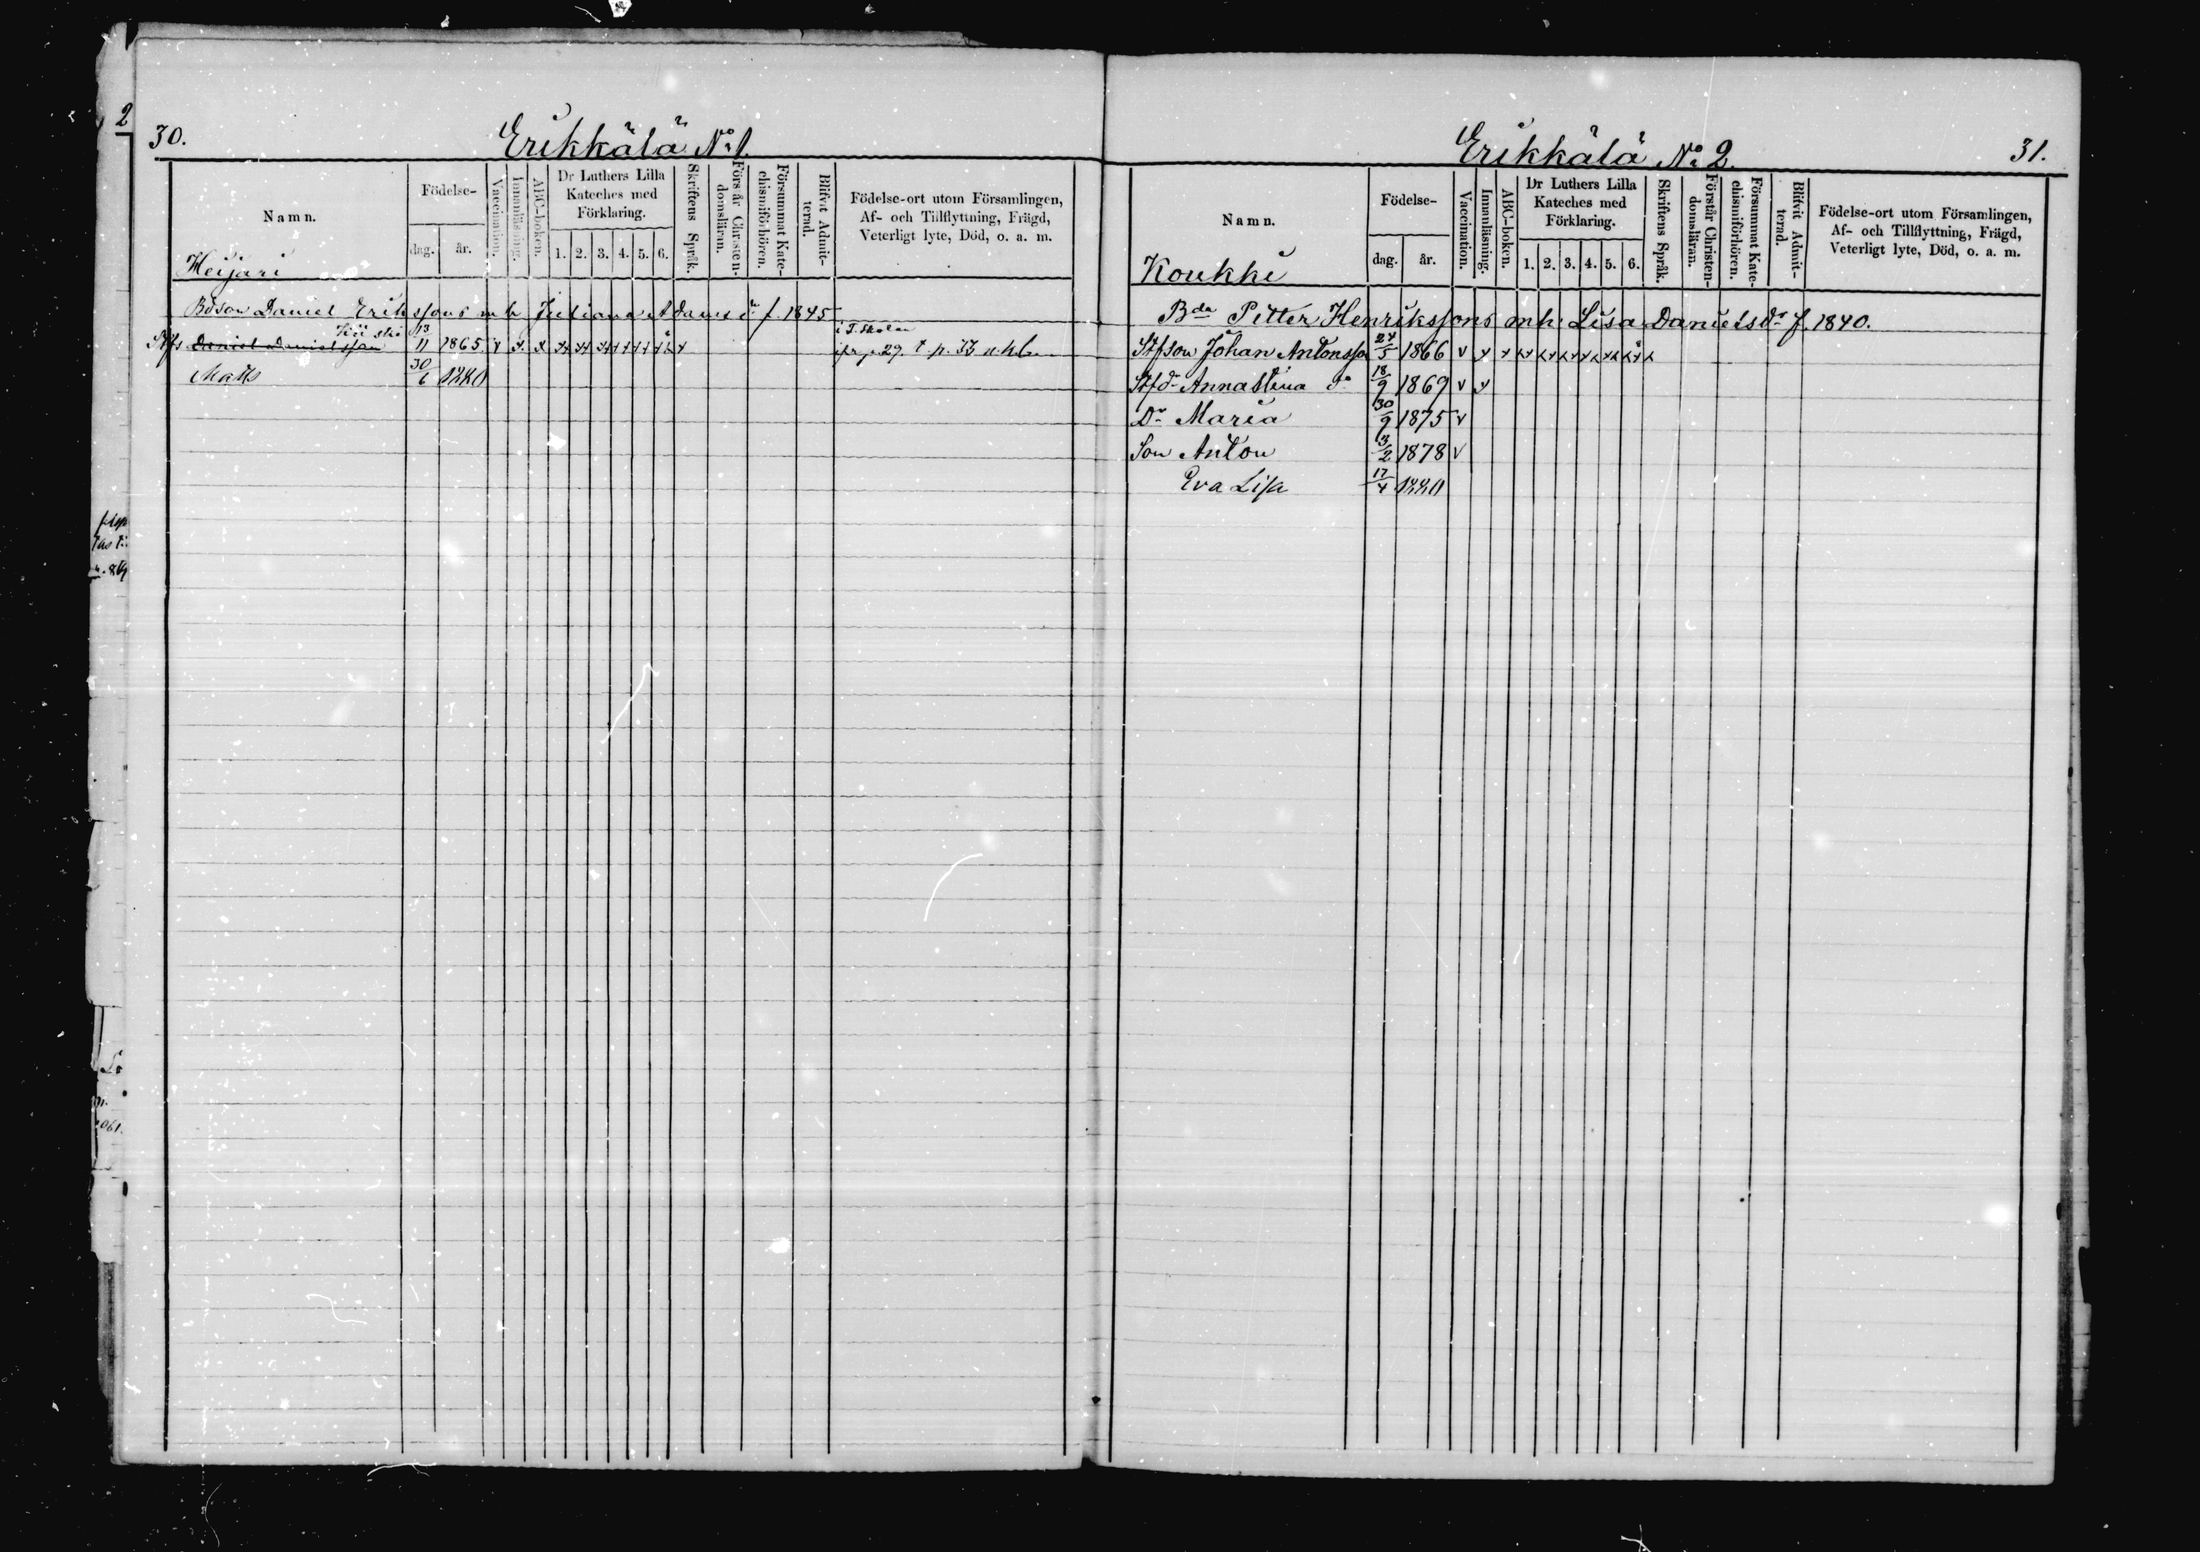 30.
Erikkälä No 1.
Namn.
Födelse-
dag.
år.
Vaccination.
Innanläsning.
ABC-boken.
Dr Luthers Lilla
Kateches med
Förklaring.
1. 2. 3. 4. 5. 6.
Skriftens Språk.
Förstår Christen-
domsläran.
Försummat Kate-
chismiförhören.
Blifvit Admit-
terad.
Födelse-ort utom Församlingen,
Af- och Tillflyttning, Frägd,
Veterligt lyte, Död, o. a. m.
Heijari
Bdson Daniel Erikssons m h Juliana Adams dr f. 1845
i T. Skolan
Stfs Daniel Danielsson 13/11 1865
29. t p. 33
Matts 30/6 1880
Erikkälä No 2.
31.
Namn.
Födelse-
dag.
år.
Vaccination.
Innanläsning.
ABC-boken.
Dr Luthers Lilla
Kateches med
Förklaring.
1. 2. 3. 4. 5. 6.
Skriftens Språk.
Förstår Christen-
domsläran.
Försummat Kate-
chismiförhören.
Blifvit Admit-
terad.
Födelse-ort utom Församlingen,
Af- och Tillflyttning, Frägd,
Veterligt lyte, Död, o. a. m.
Koukki
Bda Petter Henrikssons mh: Lisa Daniels dr f. 1840.
Stfson Johan Antonsson 24/5 1866
Stfdr Annastina do 18/9 1869
Dr Maria 30/9 1875
Son Anton 3/2 1878
Eva Lisa 17/4 1880